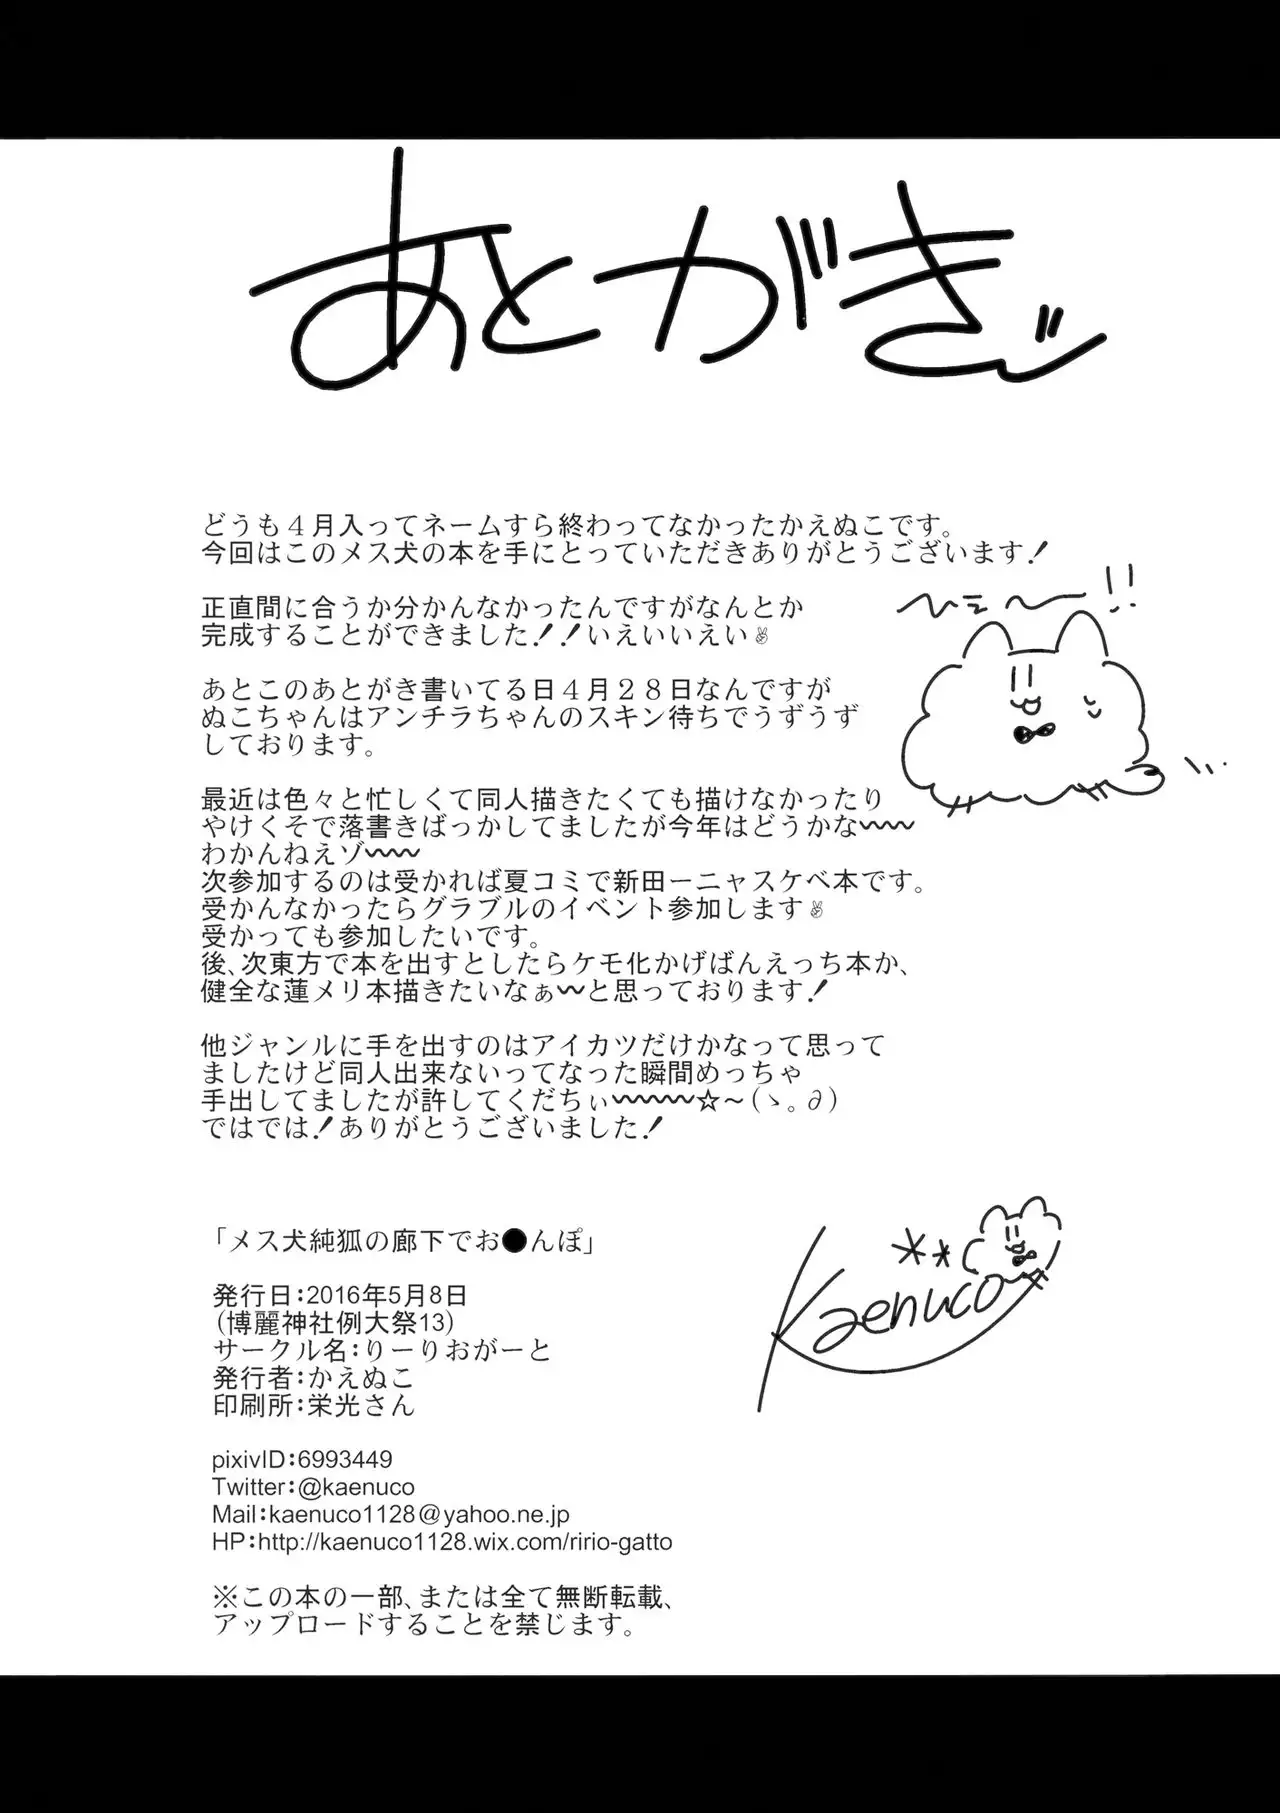 あとがきッ
どうも４月入ってネームすら終わってなかったかえぬこです。
今回はこのメス犬の本を手にとっていただきありがとうございます！
ひえ〜!!
正直間に合うか分かんなかったんですがなんとか
完成することができました！！いえいいえい✌
あとこのあとがき書いてる日４月２８日なんですが
ぬこちゃんはアンチラちゃんのスキン待ちでうずうず
しております。
最近は色々と忙しくて同人描きたくても描けなかったり
やけくそで落書きばっかしてましたが今年はどうかな〰〰
わかんねえゾ〰〰
次参加するのは受かれば夏コミで新田ーニャスケベ本です。
受かんなかったらグラブルのイベント参加します✌
受かっても参加したいです。
後、次東方で本を出すとしたらケモ化かげばんえっち本か、
健全な蓮メリ本描きたいなぁ〰と思っております！
他ジャンルに手を出すのはアイカツだけかなって思って
ましたけど同人出来ないってなった瞬間めっちゃ
手出してましたが許してくだちぃ〰〰〰☆～(ゝ。∂)
ではでは！ありがとうございました！
「メス犬純狐の廊下でお●んぽ」
Kaenuco
発行日：2016年5月8日
（博麗神社例大祭13）
サークル名：りーりおがーと
発行者：かえぬこ
印刷所：栄光さん
pixivID：6993449
Twitter：@kaenuco
Mail：kaenuco1128@yahoo.ne.jp
HP：http://kaenuco1128.wix.com/ririo-gatto
※この本の一部、または全て無断転載、
アップロードすることを禁じます。